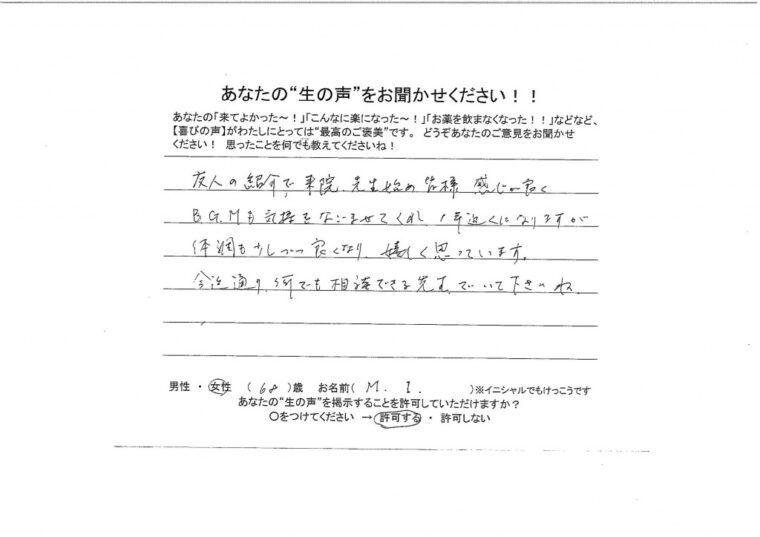 あなたの“生の声”をお聞かせください！！
あなたの「来てよかった～！」「こんなに楽になった～！」「お薬を飲まなくなった！！」などなど、
【喜びの声】がわたしにとっては“最高のご褒美”です。 どうぞあなたのご意見をお聞かせ
ください！ 思ったことを何でも教えてくださいね！
友人の紹介で、来院、先生始め皆様 感じが良く
B.G.Mも気持をなごませてくれ、1年近くになりますが
体調も少しづつ良くなり、嬉しく思っています。
今迄通り、何でも相談できる先生でいて下さいね
男性 ・ 女性 （ 68 ）歳 お名前（ M. I. ）※イニシャルでもけっこうです
あなたの“生の声”を掲示することを許可していただけますか？
〇をつけてください → 許可する ・ 許可しない